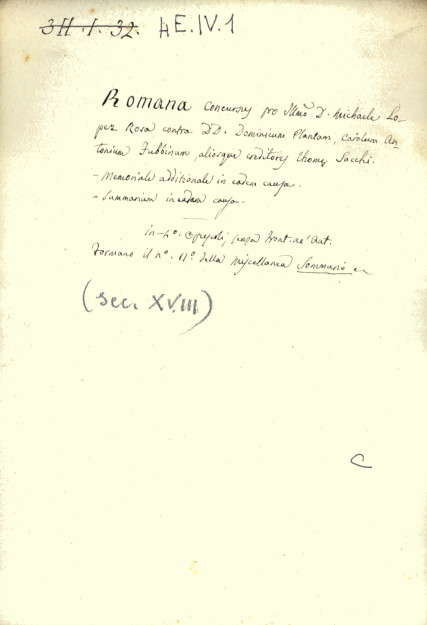 3H.I.32. 4E.IV.1
Romana Concursus pro Illmo D. Michaele Lo-
pez Rosa contra DD. Dominicum Plantam, Carolum An-
tonium Fabbinum, aliosque creditores Thomę Sacchi.
- Memoriale additionale in eadem causa.
- Summarium in eadem causa.
in-4°. opuscoli, senza front. ne' aut.
Formano il n°. 11° della miscellanea Sommario
(sec. XVIII)
C